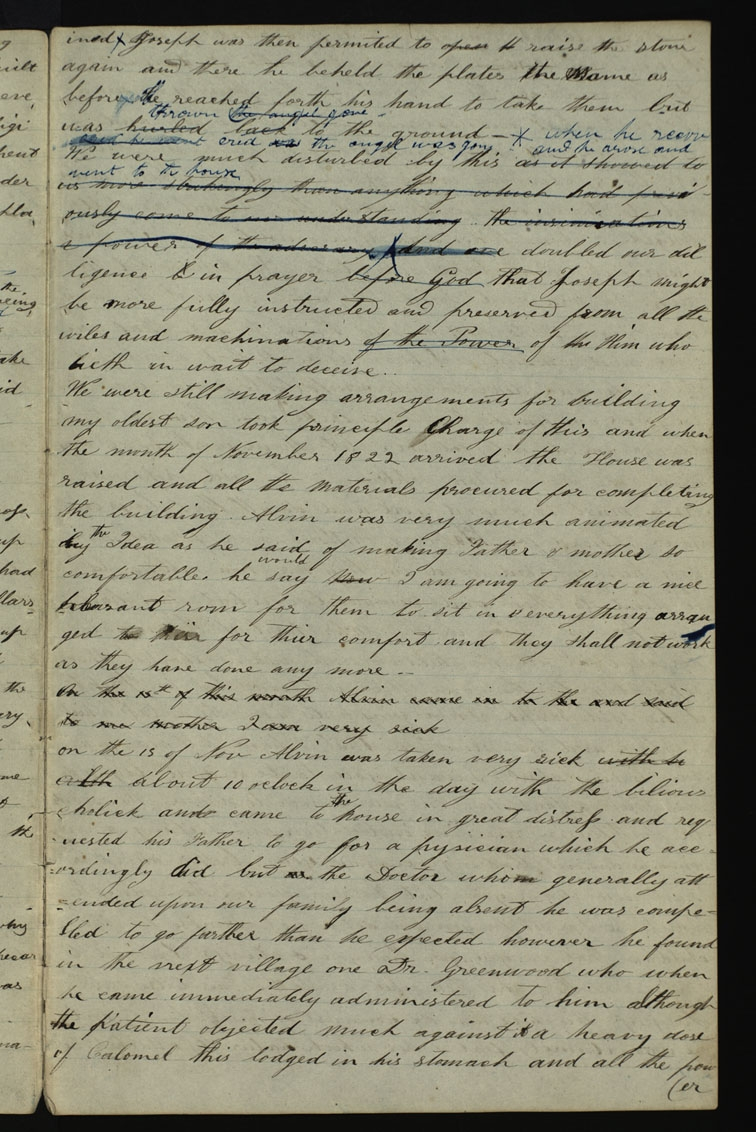 ined Joseph was then permited to open it raise the stone
again and there he beheld the plates the same as
before He reached forth his hand to take them but
thrown the angel gone
was hurled back to the ground — when he recov
ered the angel was gon and he arose and
We were much disturbed by this as it showed to
went to the house
us more strikingly than anything which had previ-
ously come to our understanding. the insinuations
& power of the adversary and we doubled our dil
ligence & in prayer before God that Joseph might
be more fully instructed and preserved from all the
wiles and machinations of the Power of the Him who
lieth in wait to deceive..
We were still making arrangements for building
my oldest son took principle Charge of this and when
the month of November 1822 arrived the House was
raised and all the materials procured for completing
the building Alvin was very much animated
the
by Idea as he said of making Father & mother so
would
comfortable. he say now I am going to have a nice
pleasant rom for them to sit in & everything arran
ged for thier comfort and they shall not work
as they have done any more —
On the 15th of this month Alvin came in to the and said
to me mother I am very sick
on the 15 of Nov Alvin was taken very sick with
about 10 oclock in the day with the bilious
the
cholick and came to house in great distress and req
uested his Father to go for a pysician which he acc-
ordingly did but the Doctor whom generally att
ended upon our family being absent he was compe=
lled to go farther than he expected however he found
in the next village one Dr. Greenwood who when
he came immediately administered to him although
the patient objected much against it a heavy dose
of Calomel this lodged in his stomach and all the pow
(er